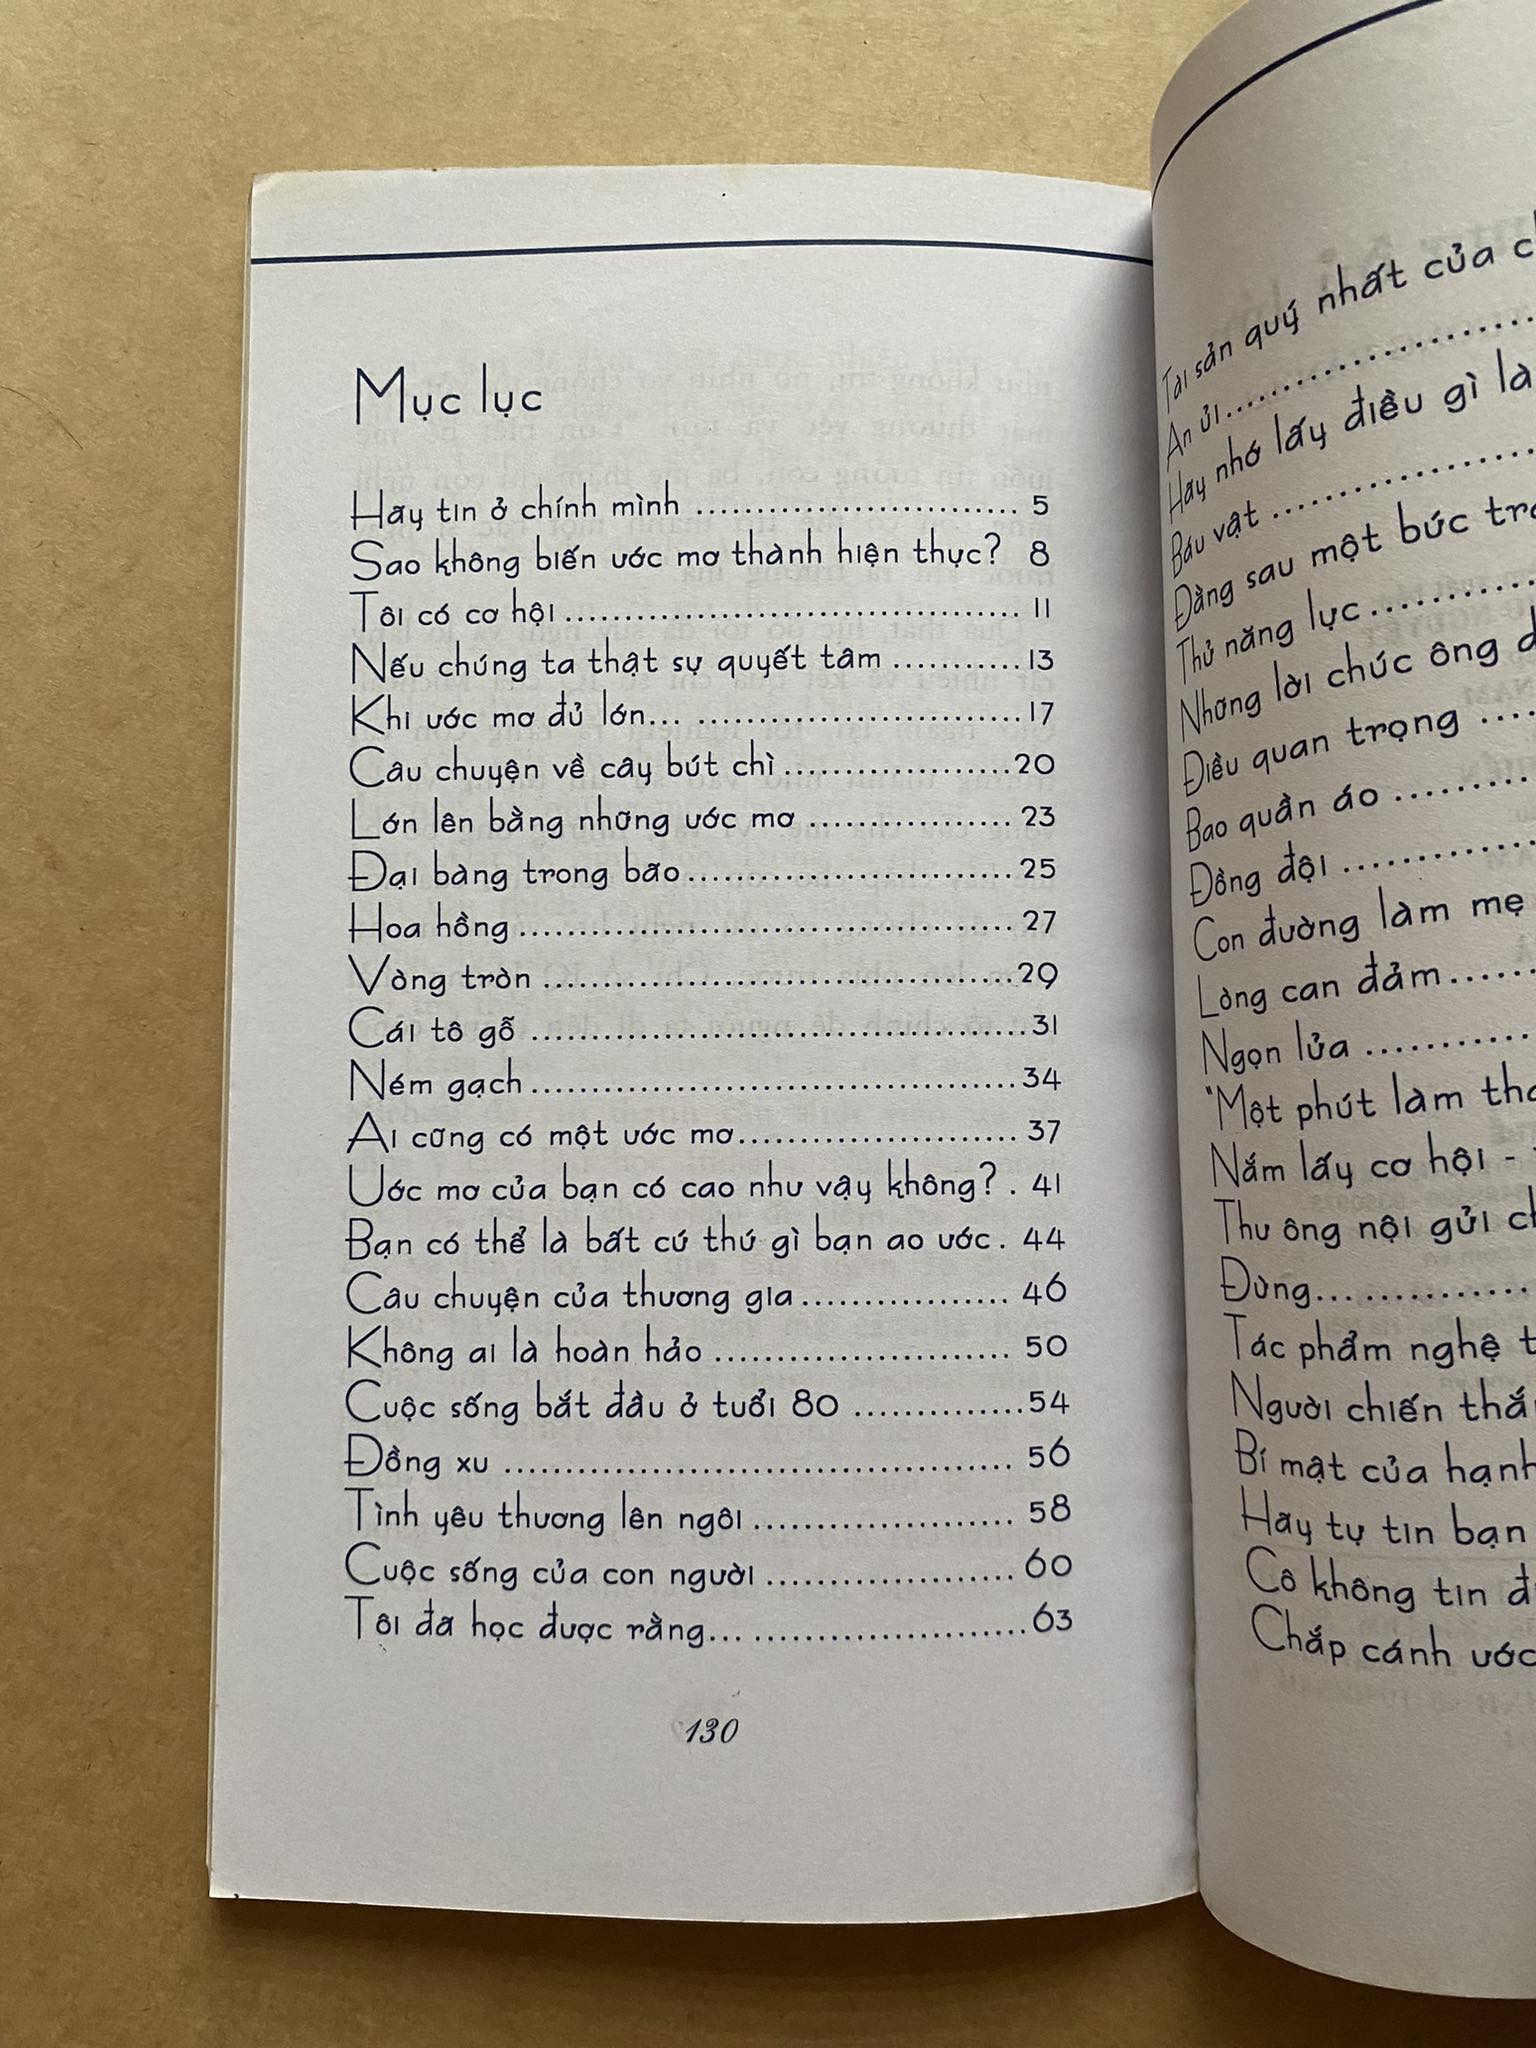 Mục lục
Hãy tin ở chính mình ........................... 5
Sao không biến ước mơ thành hiện thực? 8
Tôi có cơ hội...................................... 11
Nếu chúng ta thật sự quyết tâm ...........13
Khi ước mơ đủ lớn... ...........................17
Câu chuyện về cây bút chì ...................20
Lớn lên bằng những ước mơ ................. 23
Đại bàng trong bão........................... 25
Hoa hồng......................................... 27
Vòng tròn .......................................29
Cái tô gỗ .........................................31
Ném gạch.........................................34
Ai cũng có một ước mơ....................... 37
Ước mơ của bạn có cao như vậy không? . 41
Bạn có thể là bất cứ thứ gì bạn ao ước. 44
Câu chuyện của thương gia.................. 46
Không ai là hoàn hảo ......................... 50
Cuộc sống bắt đầu ở tuổi 80 ..............54
Đồng xu .......................................... 56
Tình yêu thương lên ngôi...................... 58
Cuộc sống của con người ..................... 60
Tôi đã học được rằng... .......................63
130
Tài sản quý nhất của
An ủi..............................
Hãy nhớ lấy điều gì là
Báu vật ..........................
Đằng sau một bức
Thử năng lực..................
Những lời chúc ông
Điều quan trọng .....
Bao quần áo ............
Đồng đội .................
Con đường làm mẹ
Lòng can đảm.......
Ngọn lửa .............
"Một phút làm
Nắm lấy cơ hội -
Thư ông nội gửi
Đừng... ..............
Tác phẩm nghệ
Người chiến
Bí mật của
Hãy tự tin bạn
Cô không tin
Chắp cánh